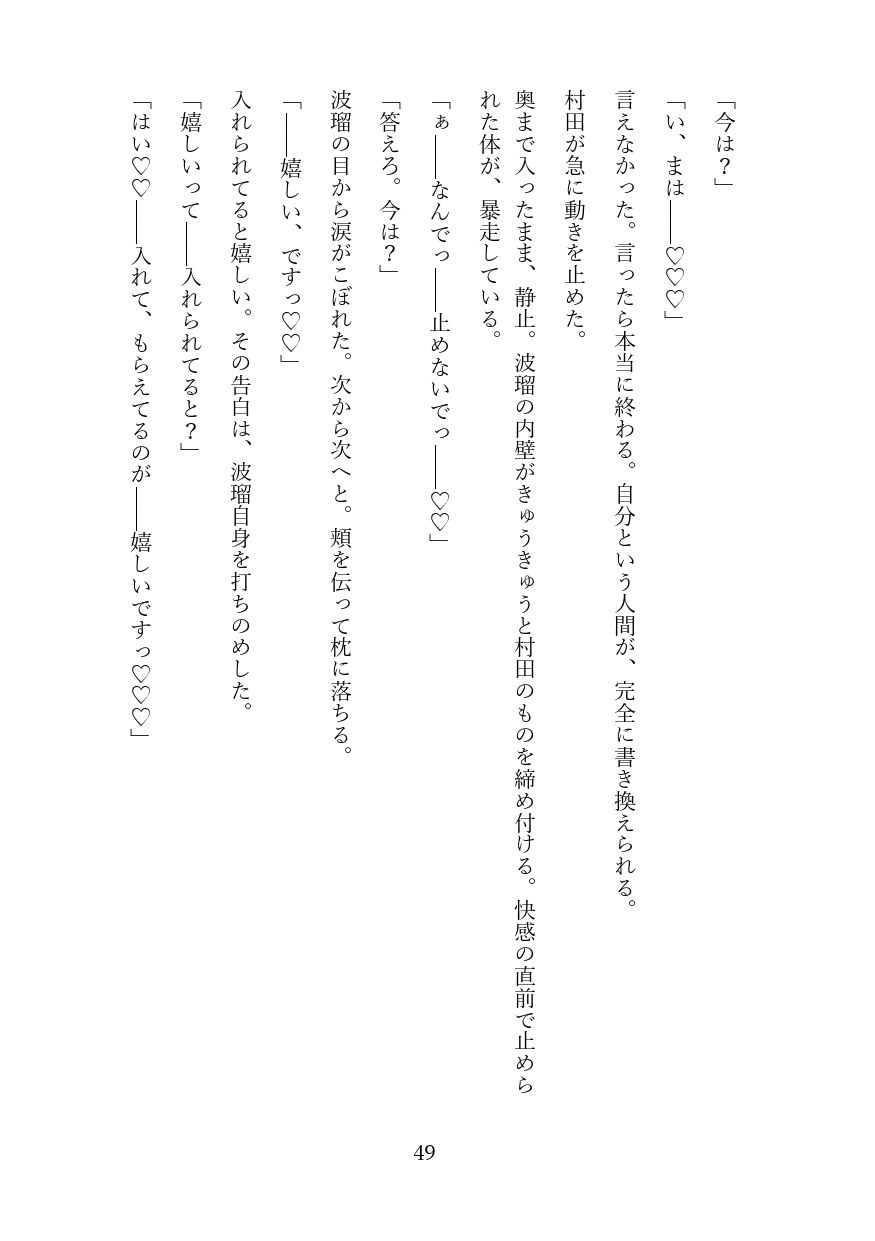 「今は？」
「い、まは――♡♡♡」
言えなかった。言ったら本当に終わる。自分という人間が、完全に書き換えられる。
村田が急に動きを止めた。
奥まで入ったまま、静止。波瑠の内壁がきゅうきゅうと村田のものを締め付ける。快感の直前で止めら
れた体が、暴走している。
「ぁ――なんでっ――止めないでっ――♡♡」
「答えろ。今は？」
波瑠の目から涙がこぼれた。次から次へと。頬を伝って枕に落ちる。
「――嬉しい、ですっ♡♡」
入れられてると嬉しい。その告白は、波瑠自身を打ちのめした。
「嬉しいって――入れられてると？」
「はい♡♡――入れて、もらえてるのが――嬉しいですっ♡♡♡」
49